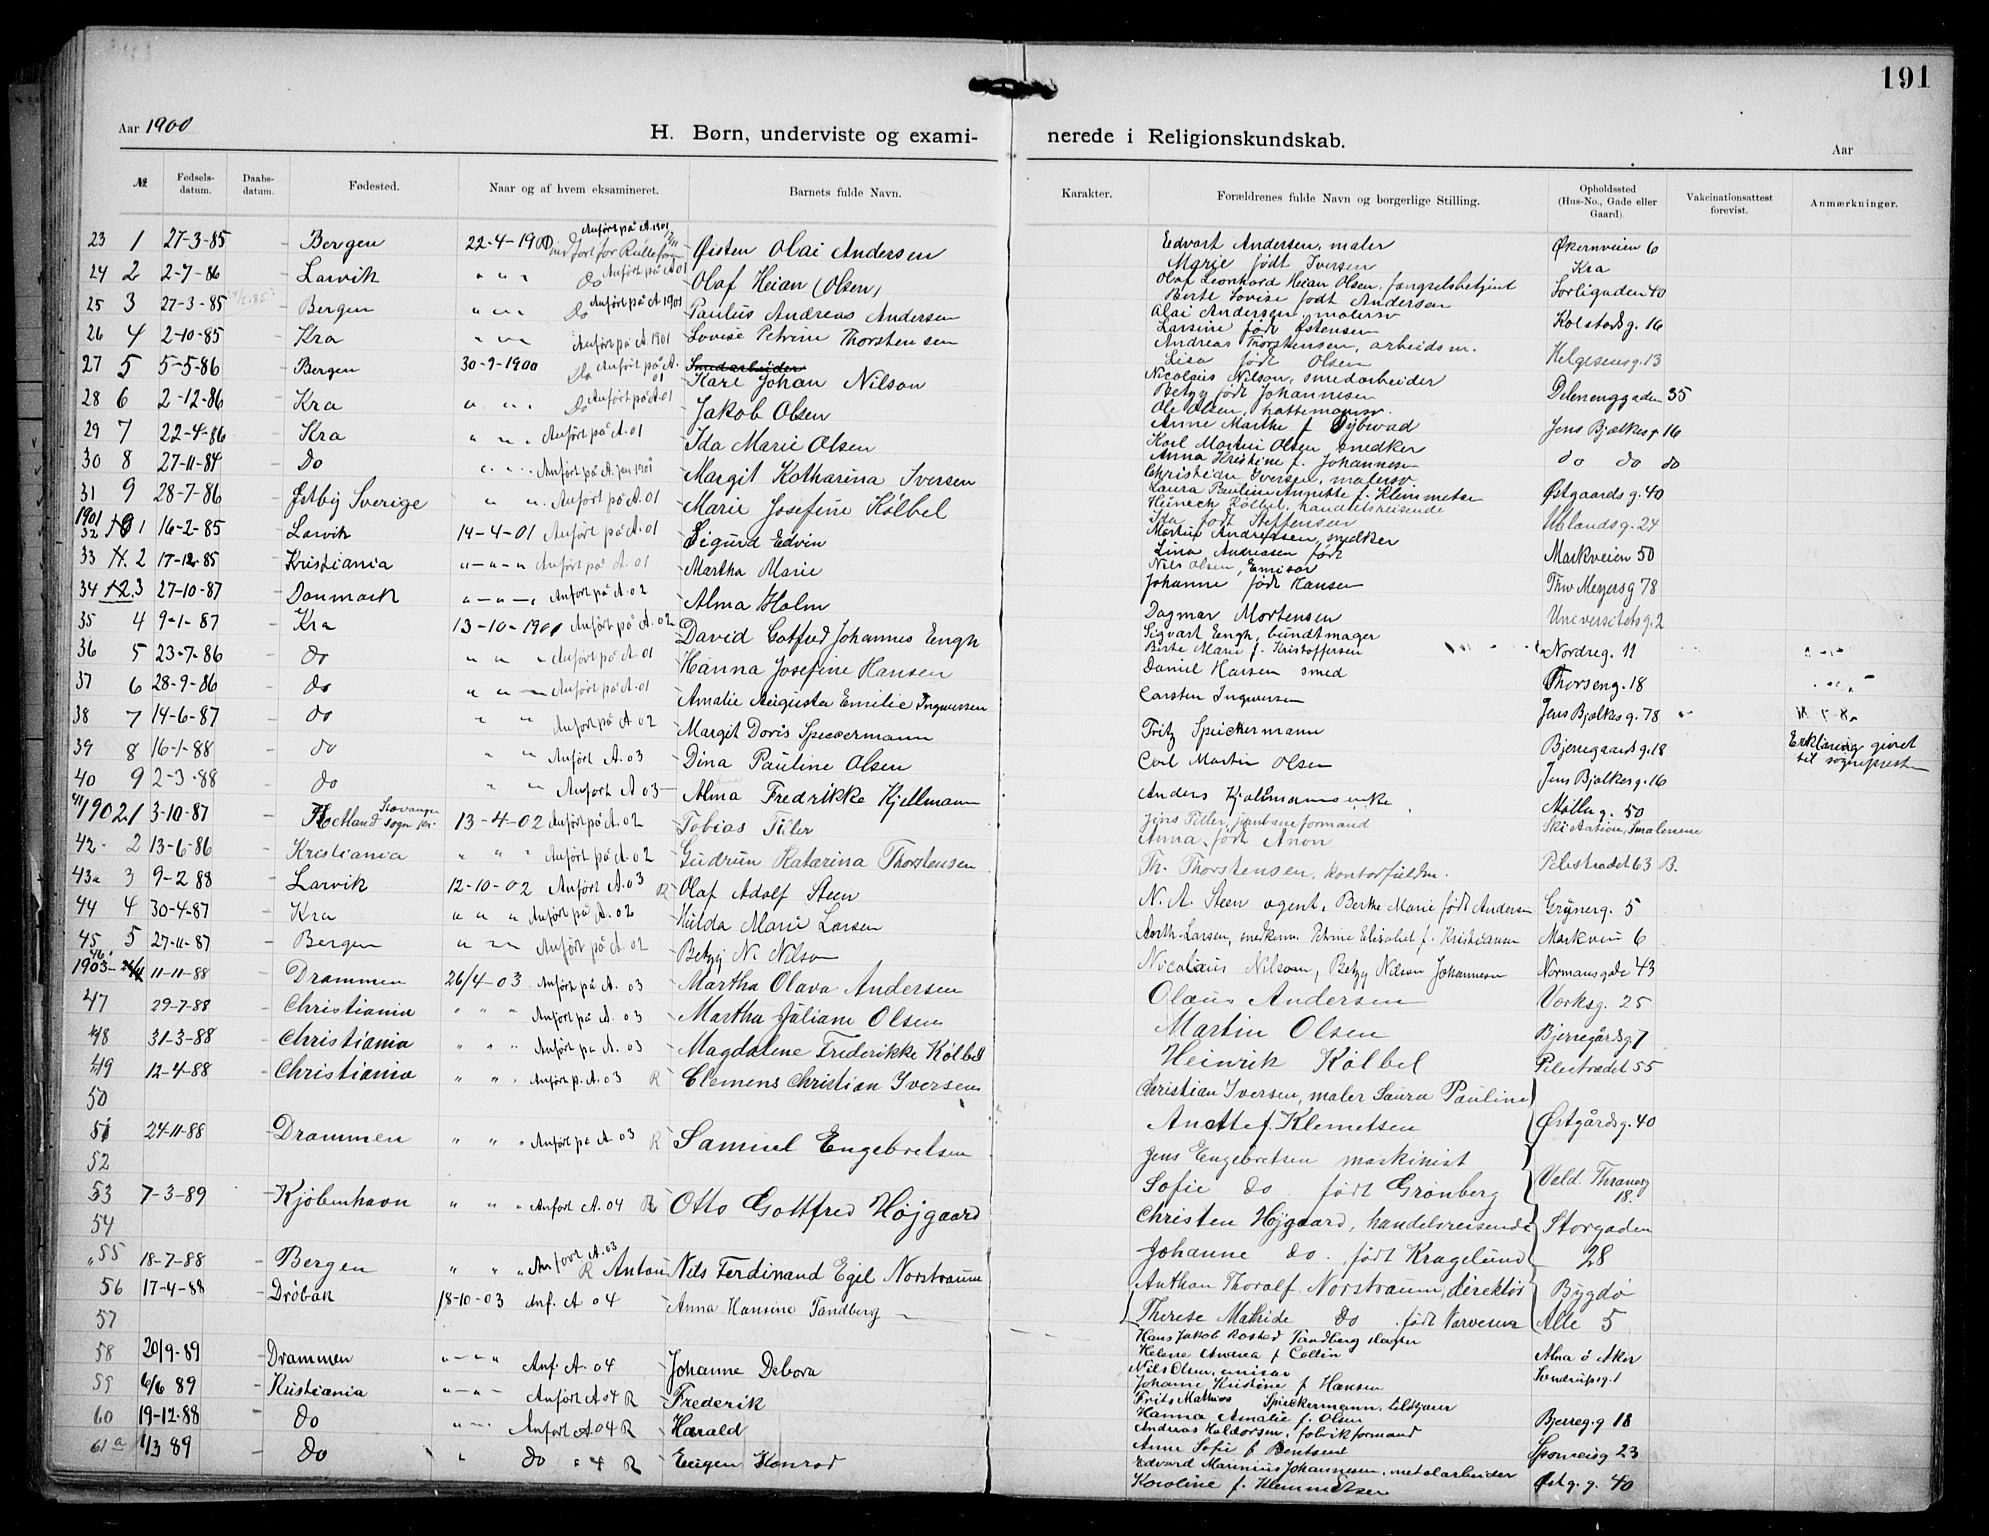 191
Aar 1900
H. Børn, underviste og exami-
nerede i Religionskundskab.
Aar
№ Fødsels-datum. Daabs-datum. Fødested. Naar og af hvem eksamineret. Barnets fulde Navn. Karakter. Forældrenes fulde Navn og borgerlige Stilling. Opholdssted (Hus-No., Gade eller Gaard). Vakcinationsattest forevist. Anmærkninger.
23 1 27-3-85 Bergen 22-4-1900 Anført på A. 1901 Øisten Olai Andersen Edvart Andersen, maler Økernveien 6
Marie født Iversen Kra
24 2 2-7-86 Larvik " " " Do Anført på A 01 Olaf Heian (Olsen) Olaf Leonhard Heian Olsen, fangselsbetjent Sorligaden 40
Berte Lovise født Andersen
25 3 27-3-85 Bergen " " " Do Anført på A 1901 Paulus Andreas Andersen Olai Andersen, malersv Kolstadsg. 16
Larsine født Østensen
26 4 2-10-85 Kra " " " Anført på A 1901 Lovise Petrine Thorstensen Andreas Thorstensen, arbeidsm. Helgesensg. 13
Lisa født Olsen
27 5 5-5-86 Bergen 30-9-1900 Do Anført på A. 01 Smedarbeider Karl Johan Nilson Nicolaus Nilson, smedarbeider Delenenggaden 35
Betzy født Johannesen
28 6 2-12-86 Kra " " " Do Anført på A. 01 Jakob Olsen Ole Olsen, hattemagersv. Jens Bjelkesg. 16
Anne Marthe f. Dybwad
29 7 22-4-86 Kra " " " Anført på A. 01 Ida Marie Olsen Karl Martin Olsen snedker do do do
Anna Kristine f. Johannesen
30 8 27-11-84 Do " " " Anført på A. 1901 Margit Katharina Iversen Christian Iversen, malersv. Østgaardsg. 40
Laura Pauline Annette f. Klemmetsen
31 9 28-7-86 Østby Sverige " " Anført på A. 01 Marie Josefine Kölbel Heinrich Kölbel, handelsreisende Uelandsg. 24
Ida født Steffensen
1901
32 1 16-2-85 Larvik 14-4-01 Anført på A. 01 Sigurd Edvin Martin Andreasen, snedker Markveien 50
Lina Andreasen født
33 2 17-12-85 Kristiania " - " - " Anført på A. 01 Martha Marie Nils Olsen, Emisær Thv Meyersg 78
Johanne født Hansen
34 3 27-10-87 Danmark " - " - " Anført på A. 02 Alma Holm Dagmar Mortensen Universitetsg. 2
35 4 9-1-87 Kra 13-10-1901 Anført på A. 02 David Gotfred Johannes Engh Sigvart Engh, bundtmager Nordreg. 11
Birte Marie f. Kristoffersen
36 5 23-7-86 do " " " Anført på A. 01 Hanna Josefine Hansen Daniel Hansen smed Thorseng. 18
37 6 28-9-86 do " " " Anført på A. 01 Amalie Augusta Emilie Ingwersen Carsten Ingwersen Jens Bjelkesg. 78
38 7 14-6-87 do " " Anført på A. 02 Margit Doris Spieckermann Fritz Speickermann Bjerregaardsg. 18 Erklæring givet til sognepresten
39 8 16-1-88 do " " Anført A. 03 Dina Pauline Olsen Carl Martin Olsen Jens Bjelkesg. 16
40 9 2-3-88 do " " Anført A 03 Alma Fredrikke Kjellmann Anders Kjellmanns enke Møllerg. 50
41 1902 1 3-10-87 Hetland sogn Stavanger 13-4-02 Anført på A. 02 Tobias Tiller Jens Tiller, jernbaneformand Ski station, Smalenene
Anna født Anon
42 2 13-6-86 Kristiania " " " Anført på A. 02 Gudrun Katarina Thorstensen Th. Thorstensen, kontorfuldm. Pilestrædet 63 B.
43 3 9-2 88 Larvik 12-10-02 Anført A. 03 R Olaf Adolf Steen N. A. Steen agent, Berthe Marie født Andersen Grünerg. 5
44 4 30-4-87 Kra " " " Anført på A. 02 Hulda Marie Larsen Larsen, snedkerm. Petrine Elisabet f. Kristiansen Markvein 6
45 5 27-11-87 Bergen " " " Anført på A. 02 Betzy N. Nilson Nicolaus Nilsson, Betzy Nilson Johannesen Normansgade 43
46 1903 11-11-88 Drammen 26/4-03 Anført på A. 03 Martha Olava Andersen Olaus Andersen Verksg. 25
47 29-7-88 Christiania " " " Anført på A. 03 Martha Juliane Olsen Martin Olsen Bjerregårdsg 7
48 31-3-88 Christiania " " " Anført på A. 03 Magdalene Frederikke Kölbel Heinrik Kölbel Pilestrædet 55
49 12-4-88 Christiania " " " Anført p. A. 03 R Clemens Christian Iversen Christian Iversen, maler Laura Pauline
50 Anette f. Klemetsen Østgårdsg. 40
51 24-11-88 Drammen " " " Anført på A. 03 R Samuel Engebretsen Jens Engebretsen maskinist
52 Sofie do født Grønberg Vald. Thranesg 18.
53 7-3-89 Kjøbenhavn " " " Anført A. 04 R Otto Gottfred Højgaard Christen Højgaard, handelsreisende Storgaden
54 Johanne do. født Kragelund 28
55 18-7-88 Bergen " " " Anført A. 03 R Anton Nils Ferdinand Egil Norstraum Anthon Thoralf Norstraum, direktør Bygdø
56 17-4-88 Drøbak 18-10-03 Anf. A 04 Anna Hansine Tandberg Therese Mathide Do født Narvesen Alle 5
57 Hans Jakob Rosted Tandberg slagter
Helene Andrea f Collin
58 20/9-89 Drammen " - " " Anf. A. 04 Johanne Debora Nils Olsen, emisær Alna ö Aker
Johanne Kristine f Hansen Sandrupsg. 1
59 6/6 89 Kristiania " - " - Anført A 04 R Frederik Frits Mathias Spieckermann,
Hanna Amalie f. Olsen Bjerreg. g 18
60 19-12-88 do " " " Anført A. 04 R Harald Andreas Haldorsen, fabrikformand
Anne Sofie f Bentsen Sponveisg 23
61 a 1/3 89 Do " Do " 4 R Eugen Konrad Edvard Marinius Johannesen, metalarbeider
Karoline f. Klemmetsen Østg. g. 40